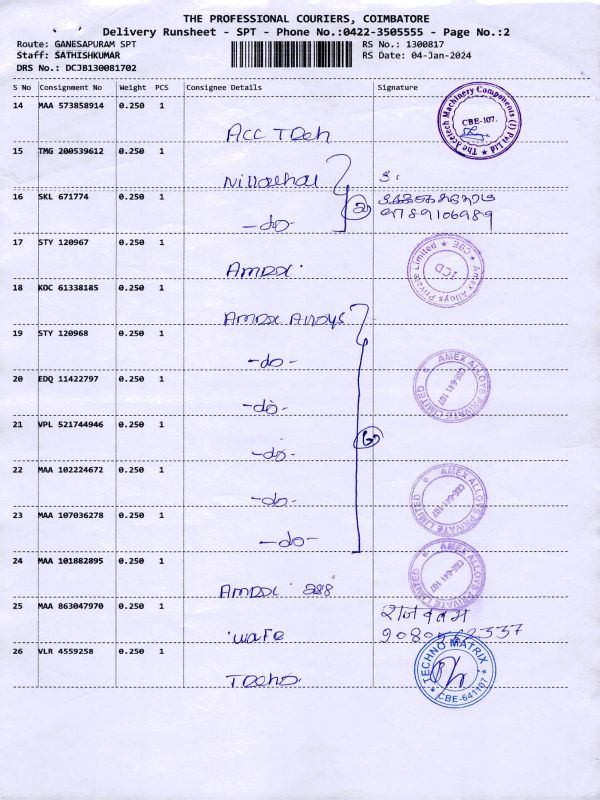 THE PROFESSIONAL COURIERS, COIMBATORE
Delivery Runsheet - SPT - Phone No.:0422-3505555 - Page No.:2
Route: GANESAPURAM SPT
Staff: SATHISHKUMAR
DRS No.: DCJB130081702
RS No.: 1300817
RS Date: 04-Jan-2024
S No Consignment No Weight PCS Consignee Details Signature
14 MAA 573858914 0.250 1
Acc Tech
The Acetech Machinery Components (I) Pvt Ltd
CBE-107.
15 TMG 200539612 0.250 1
16 SKL 671774 0.250 1
-do-
9789106989
17 STY 120967 0.250 1
Amex
Amex Alloys Private Limited ★ CBE ★
18 KOC 61338185 0.250 1
Amex Alloys
19 STY 120968 0.250 1
-do-
20 EDQ 11422797 0.250 1
-do-
AMEX ALLOYS PRIVATE LIMITED
CBE-641 107
21 VPL 521744946 0.250 1
-do-
22 MAA 102224672 0.250 1
-do-
AMEX ALLOYS PRIVATE LIMITED
CBE-641 107
23 MAA 107036278 0.250 1
-do-
24 MAA 101882895 0.250 1
Amex
AMEX ALLOYS PRIVATE LIMITED
CBE-641 107
25 MAA 863047970 0.250 1
26 VLR 4559258 0.250 1
Techno
TECHNO MATRIX
★ CBE-641107 ★